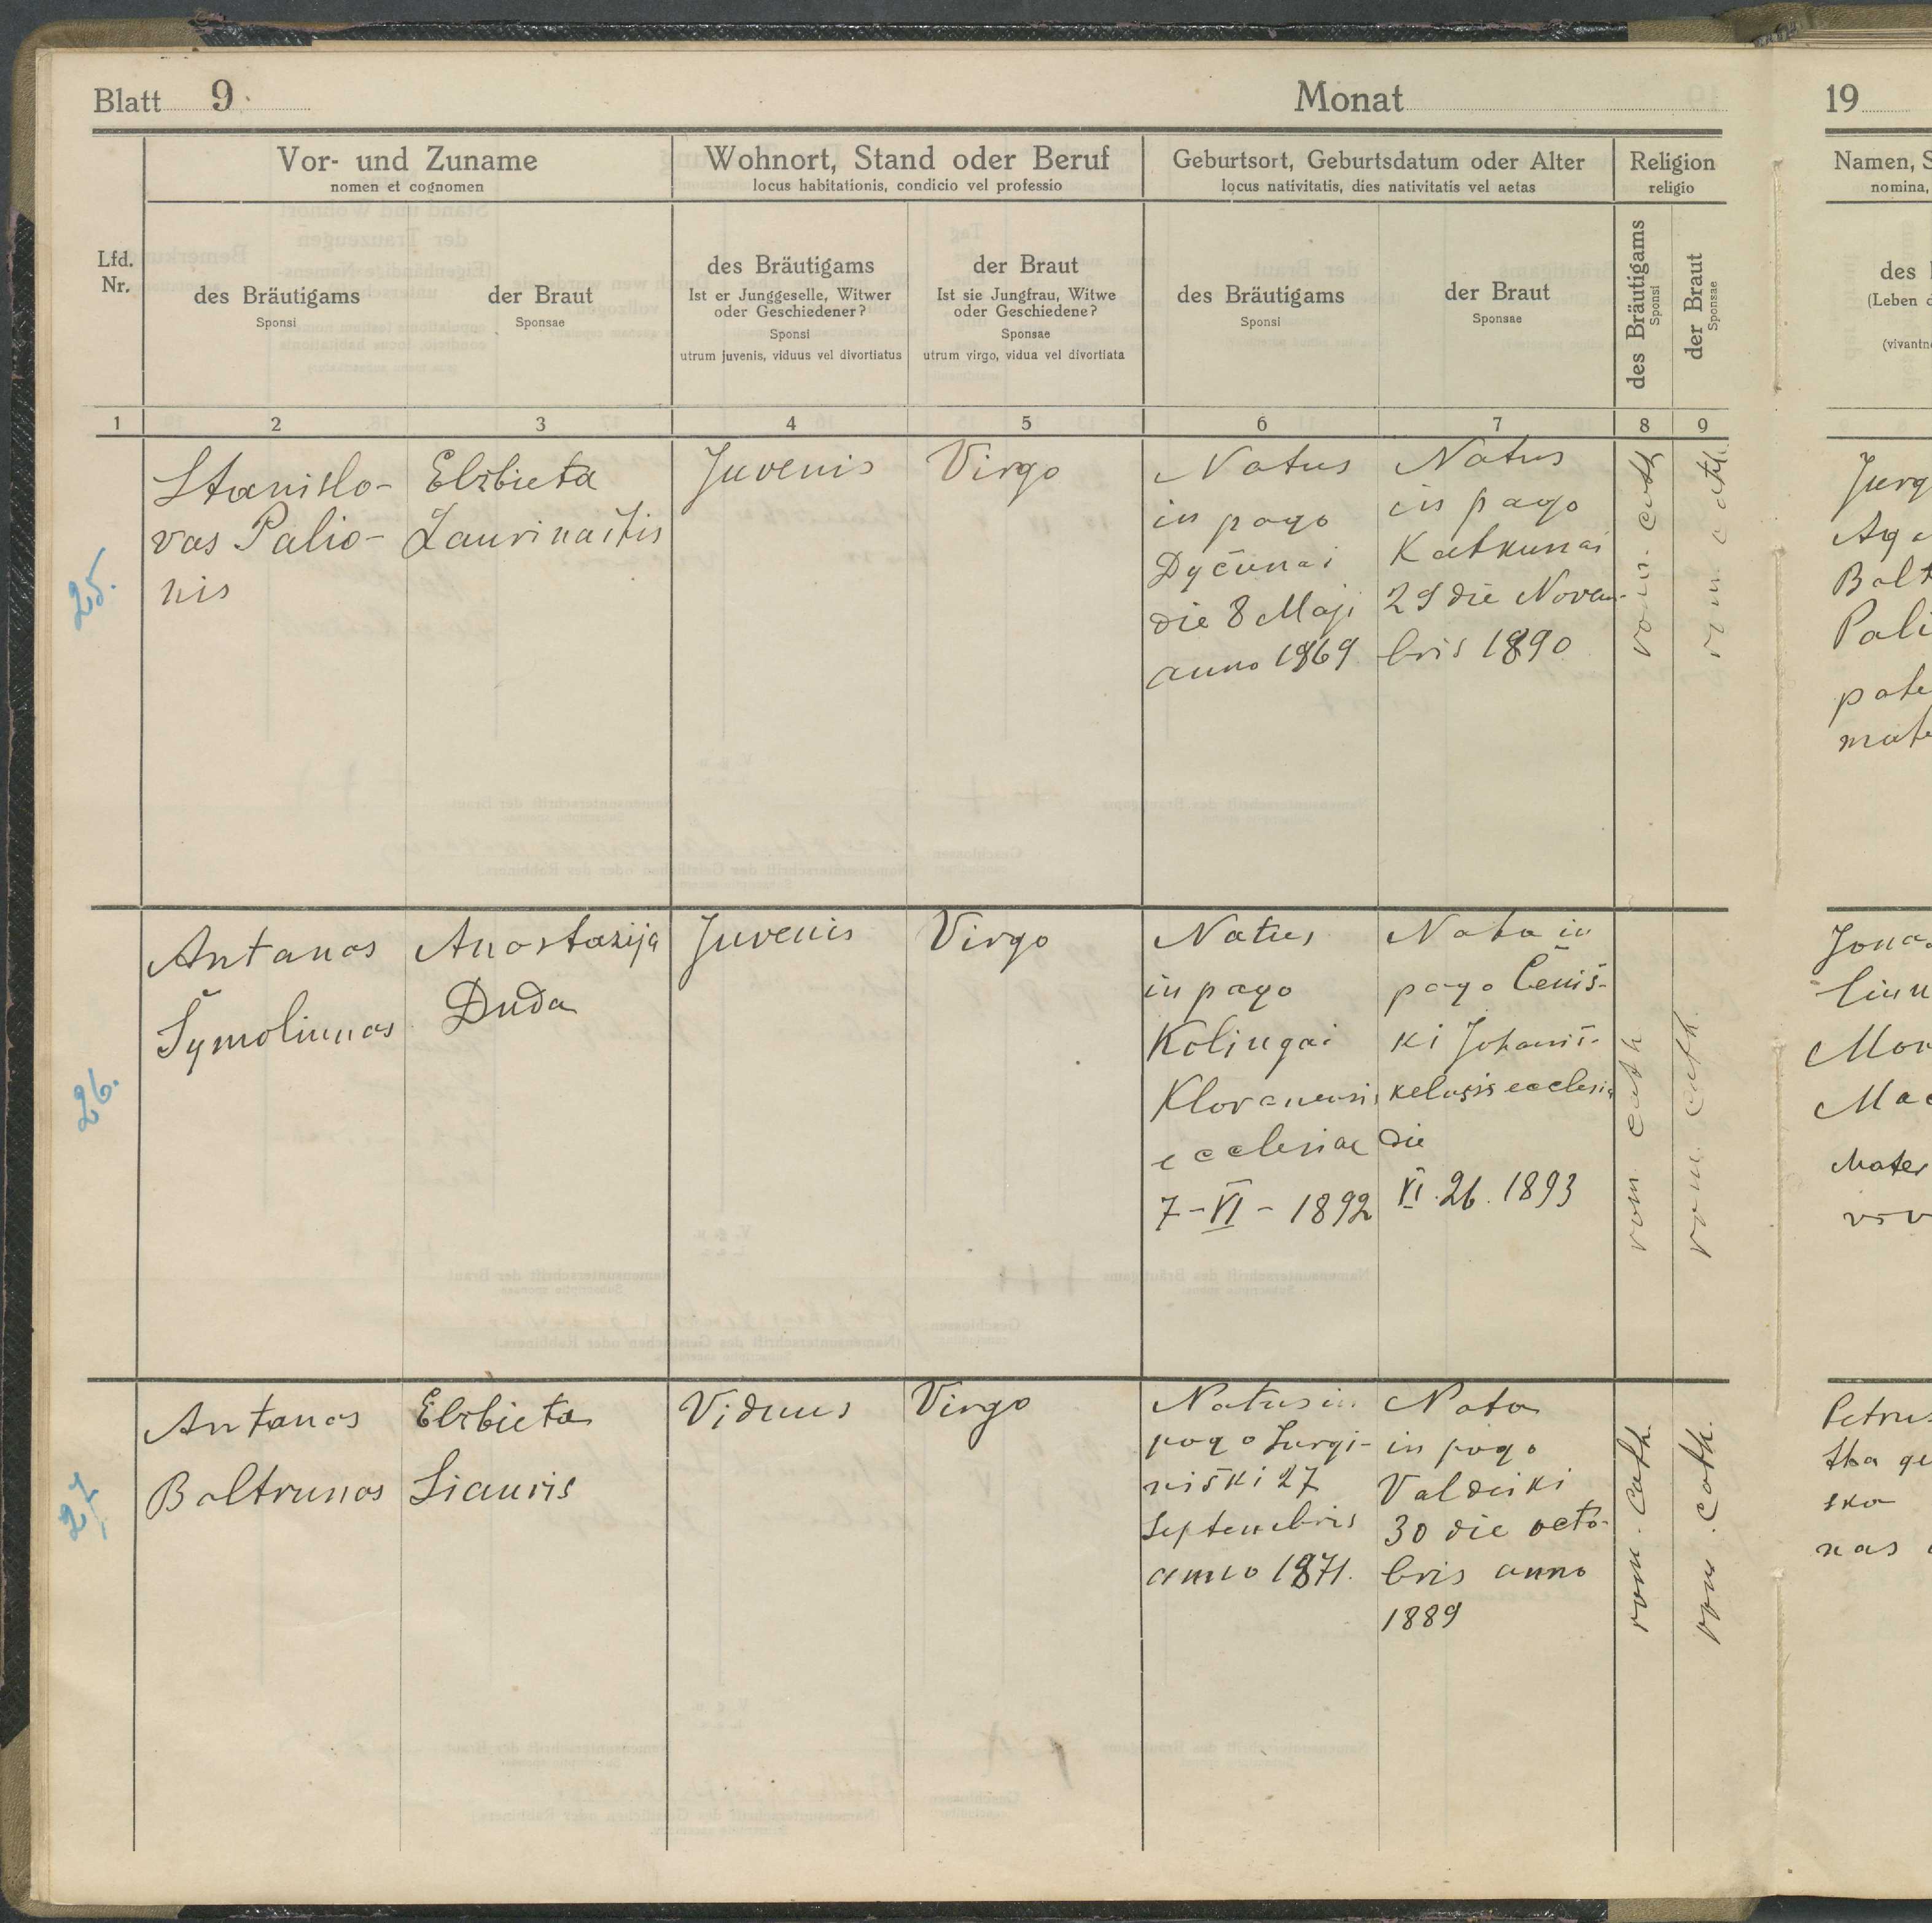 Blatt 9.
Monat
19
Vor- und Zuname
nomen et cognomen
Wohnort, Stand oder Beruf
locus habitationis, condicio vel professio
Geburtsort, Geburtsdatum oder Alter
locus nativitatis, dies nativitatis vel aetas
Religion
religio
Namen, S
nomina,
Lfd.
Nr.
des Bräutigams
Sponsi
der Braut
Sponsae
des Bräutigams
Ist er Junggeselle, Witwer
oder Geschiedener?
Sponsi
utrum juvenis, viduus vel divortiatus
der Braut
Ist sie Jungfrau, Witwe
oder Geschiedene?
Sponsae
utrum virgo, vidua vel divortiata
des Bräutigams
Sponsi
der Braut
Sponsae
des Bräutigams
Sponsi
der Braut
Sponsae
des
(Leben
(vivant
1 2 3 4 5 6 7 8 9
25.
Stanislo-
vas Palio-
nis
Elzbieta
Laurinaitis
Juvenis
Virgo
Natus
in pago
Dyčunai
die 8 Maji
anno 1869
Natus
in pago
Katkunai
29 die Novem-
bris 1890
rom. cath
rom. cath.
Jurg
Aga
Balt
Pali
pate
mate
26.
Antanas
Šymoliunas
Anastazija
Duda
Juvenis
Virgo
Natus
in pago
Kolingai
Klovanensis
ecclesiae
7-VI-1892
Nata in
pago Čeniš-
ki Johaniš-
kelusis ecclesia
die
VI. 26. 1893
rom cath
rom. cath.
Jona
liun
Mon
Mac
Mater
viv
27
Antanas
Baltrunas
Elzbieta
Liauris
Viduus
Virgo
Natus in
pago Surgi-
niški 27
Septembris
anno 1871.
Nata
in pago
Valdeiki
30 die octo-
bris anno
1889
rom. cath.
rom. cath.
Petrus
tha ge
sko
nas